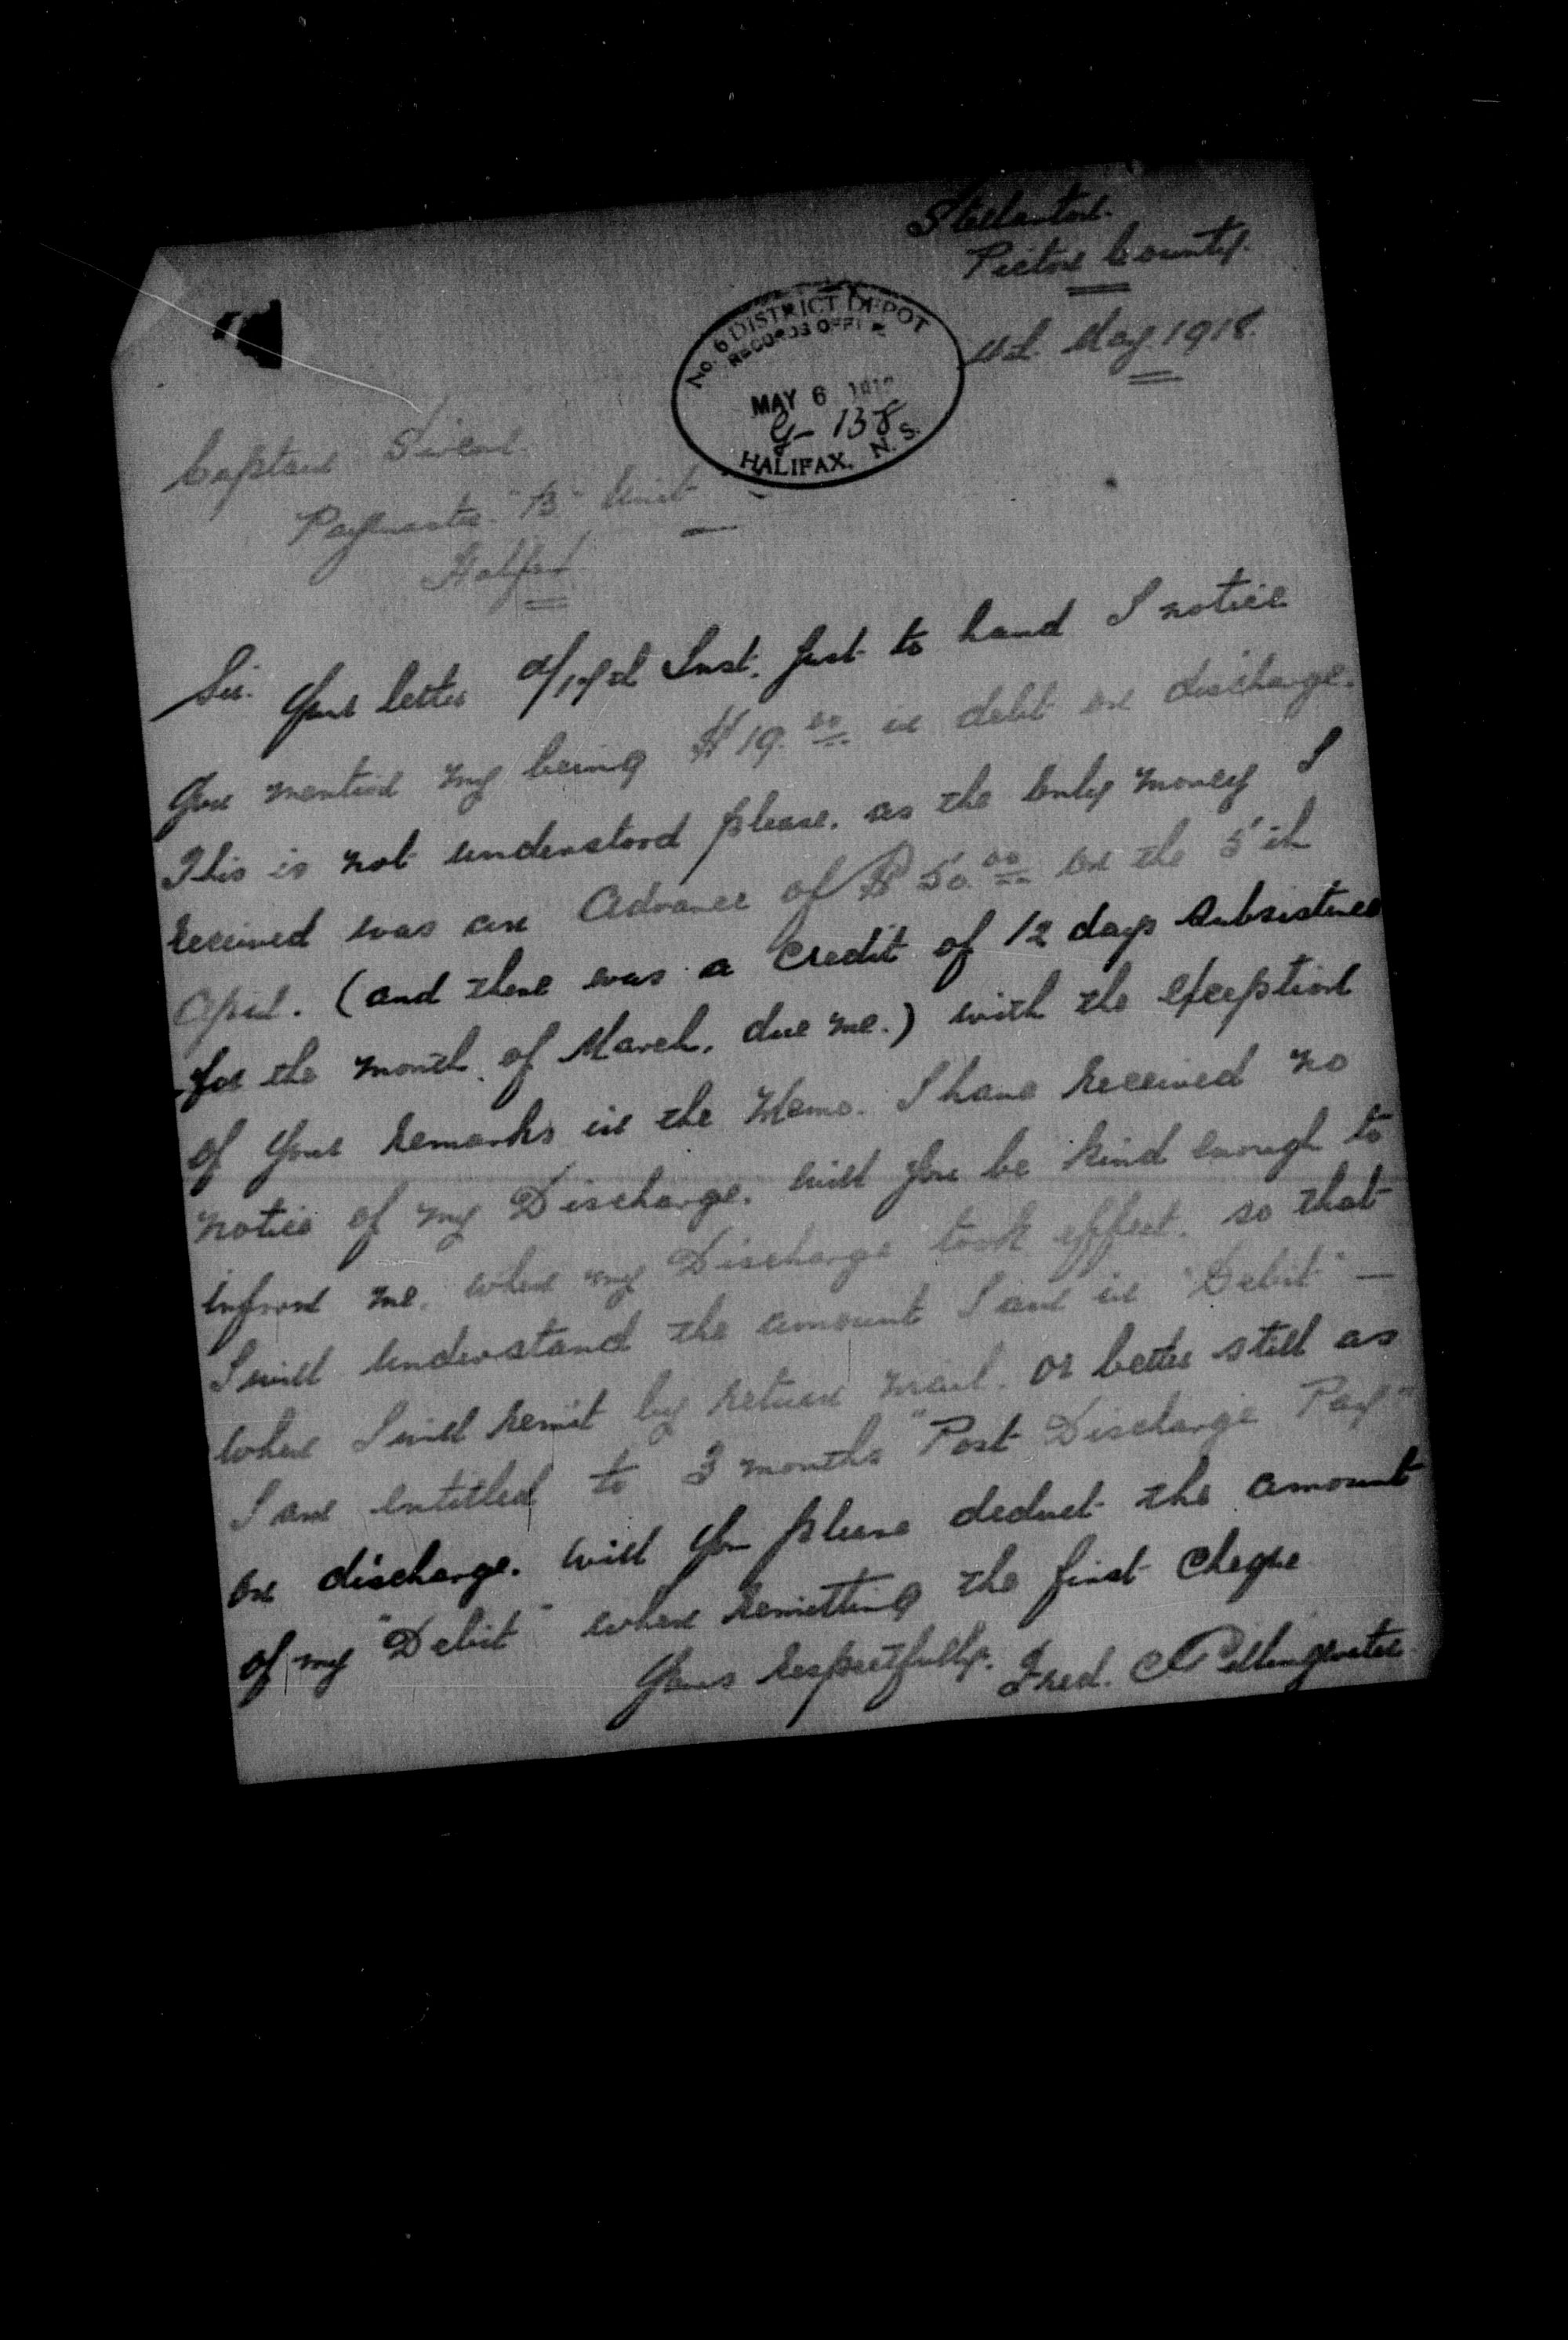 Stellarton.
Pictou County.
4th May 1918.
No. 6 DISTRICT DEPOT
RECORDS OFFICE
MAY 6 1918
G- 138
HALIFAX, N. S.
Captain
Paymaster "B" Unit
Halifax
Sir. Your letter d/ Inst. Just to hand I notice
you mention my being $19.00 in debt on discharge.
This is not understood please. as the only money I
received was an Advance of $50.00 on the 5th
April. (and there was a credit of 12 days subsistence
for the month of March, due me.) with the exception
of your remarks in the Memo. I have received no
notice of my Discharge. will you be kind enough to
inform me. when my Discharge took effect. so that
I will understand the amount I am in "Debit" —
when I will remit by return mail. or better still as
I am entitled to 3 months "Post Discharge Pay"
on discharge. will you please deduct the amount
of my "Debit" when remitting the first cheque
Yours respectfully. Fred. C Pillingwater